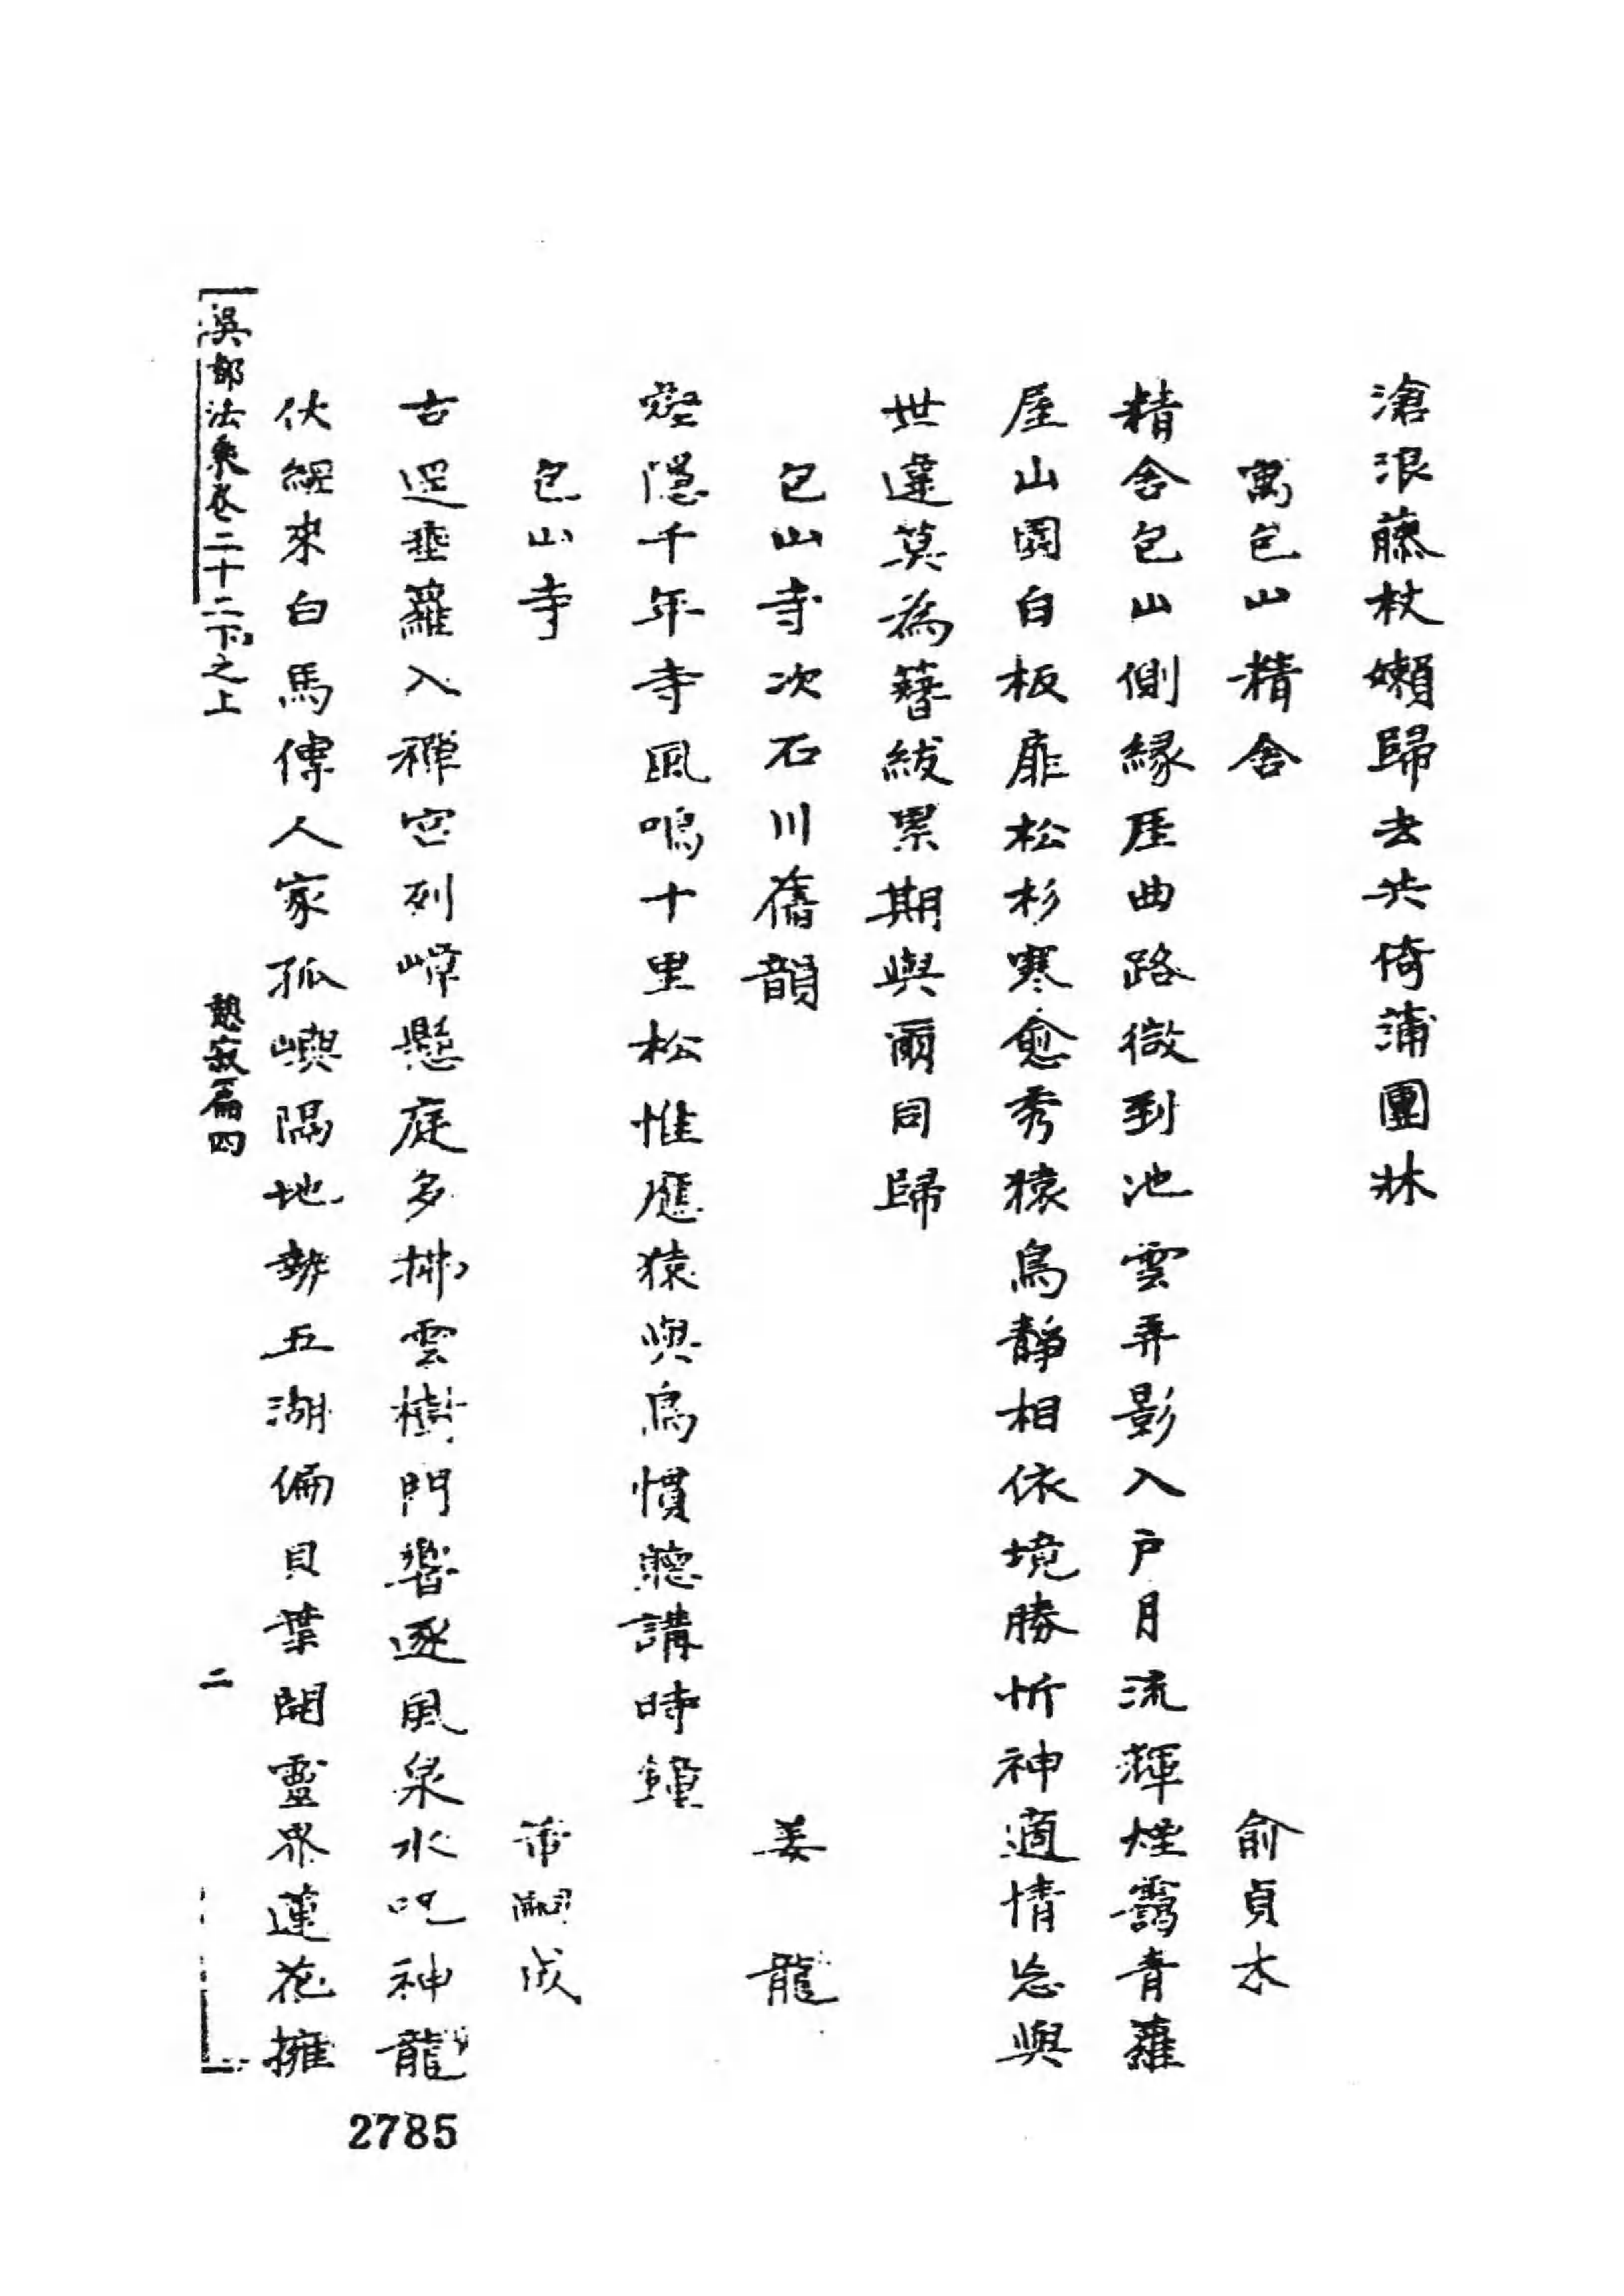 滄浪藤杖嬾歸去共倚蒲團牀
寓包山精舍
俞貞木
精舍包山側緣厓曲路微到池雲弄影入戶月流輝煙靄青蘿
屋山園白板扉松杉寒愈秀猿鳥靜相依境勝忻神適情忘與
世違莫為簪紱累期與爾同歸
包山寺次石川舊韻
姜龍
燈隱千年寺風鳴十里松惟應猿與鳥慣聽講時鐘
包山寺
嗣成
古逕垂蘿入禪宮列嶂懸庭多拂雲樹門響逐風泉水咒神龍
伏經來白馬傳人家孤嶼隔地勢五湖偏貝葉開靈界蓮花擁
吳都法乘卷二十二下之上
憩寂篇四
二
2785